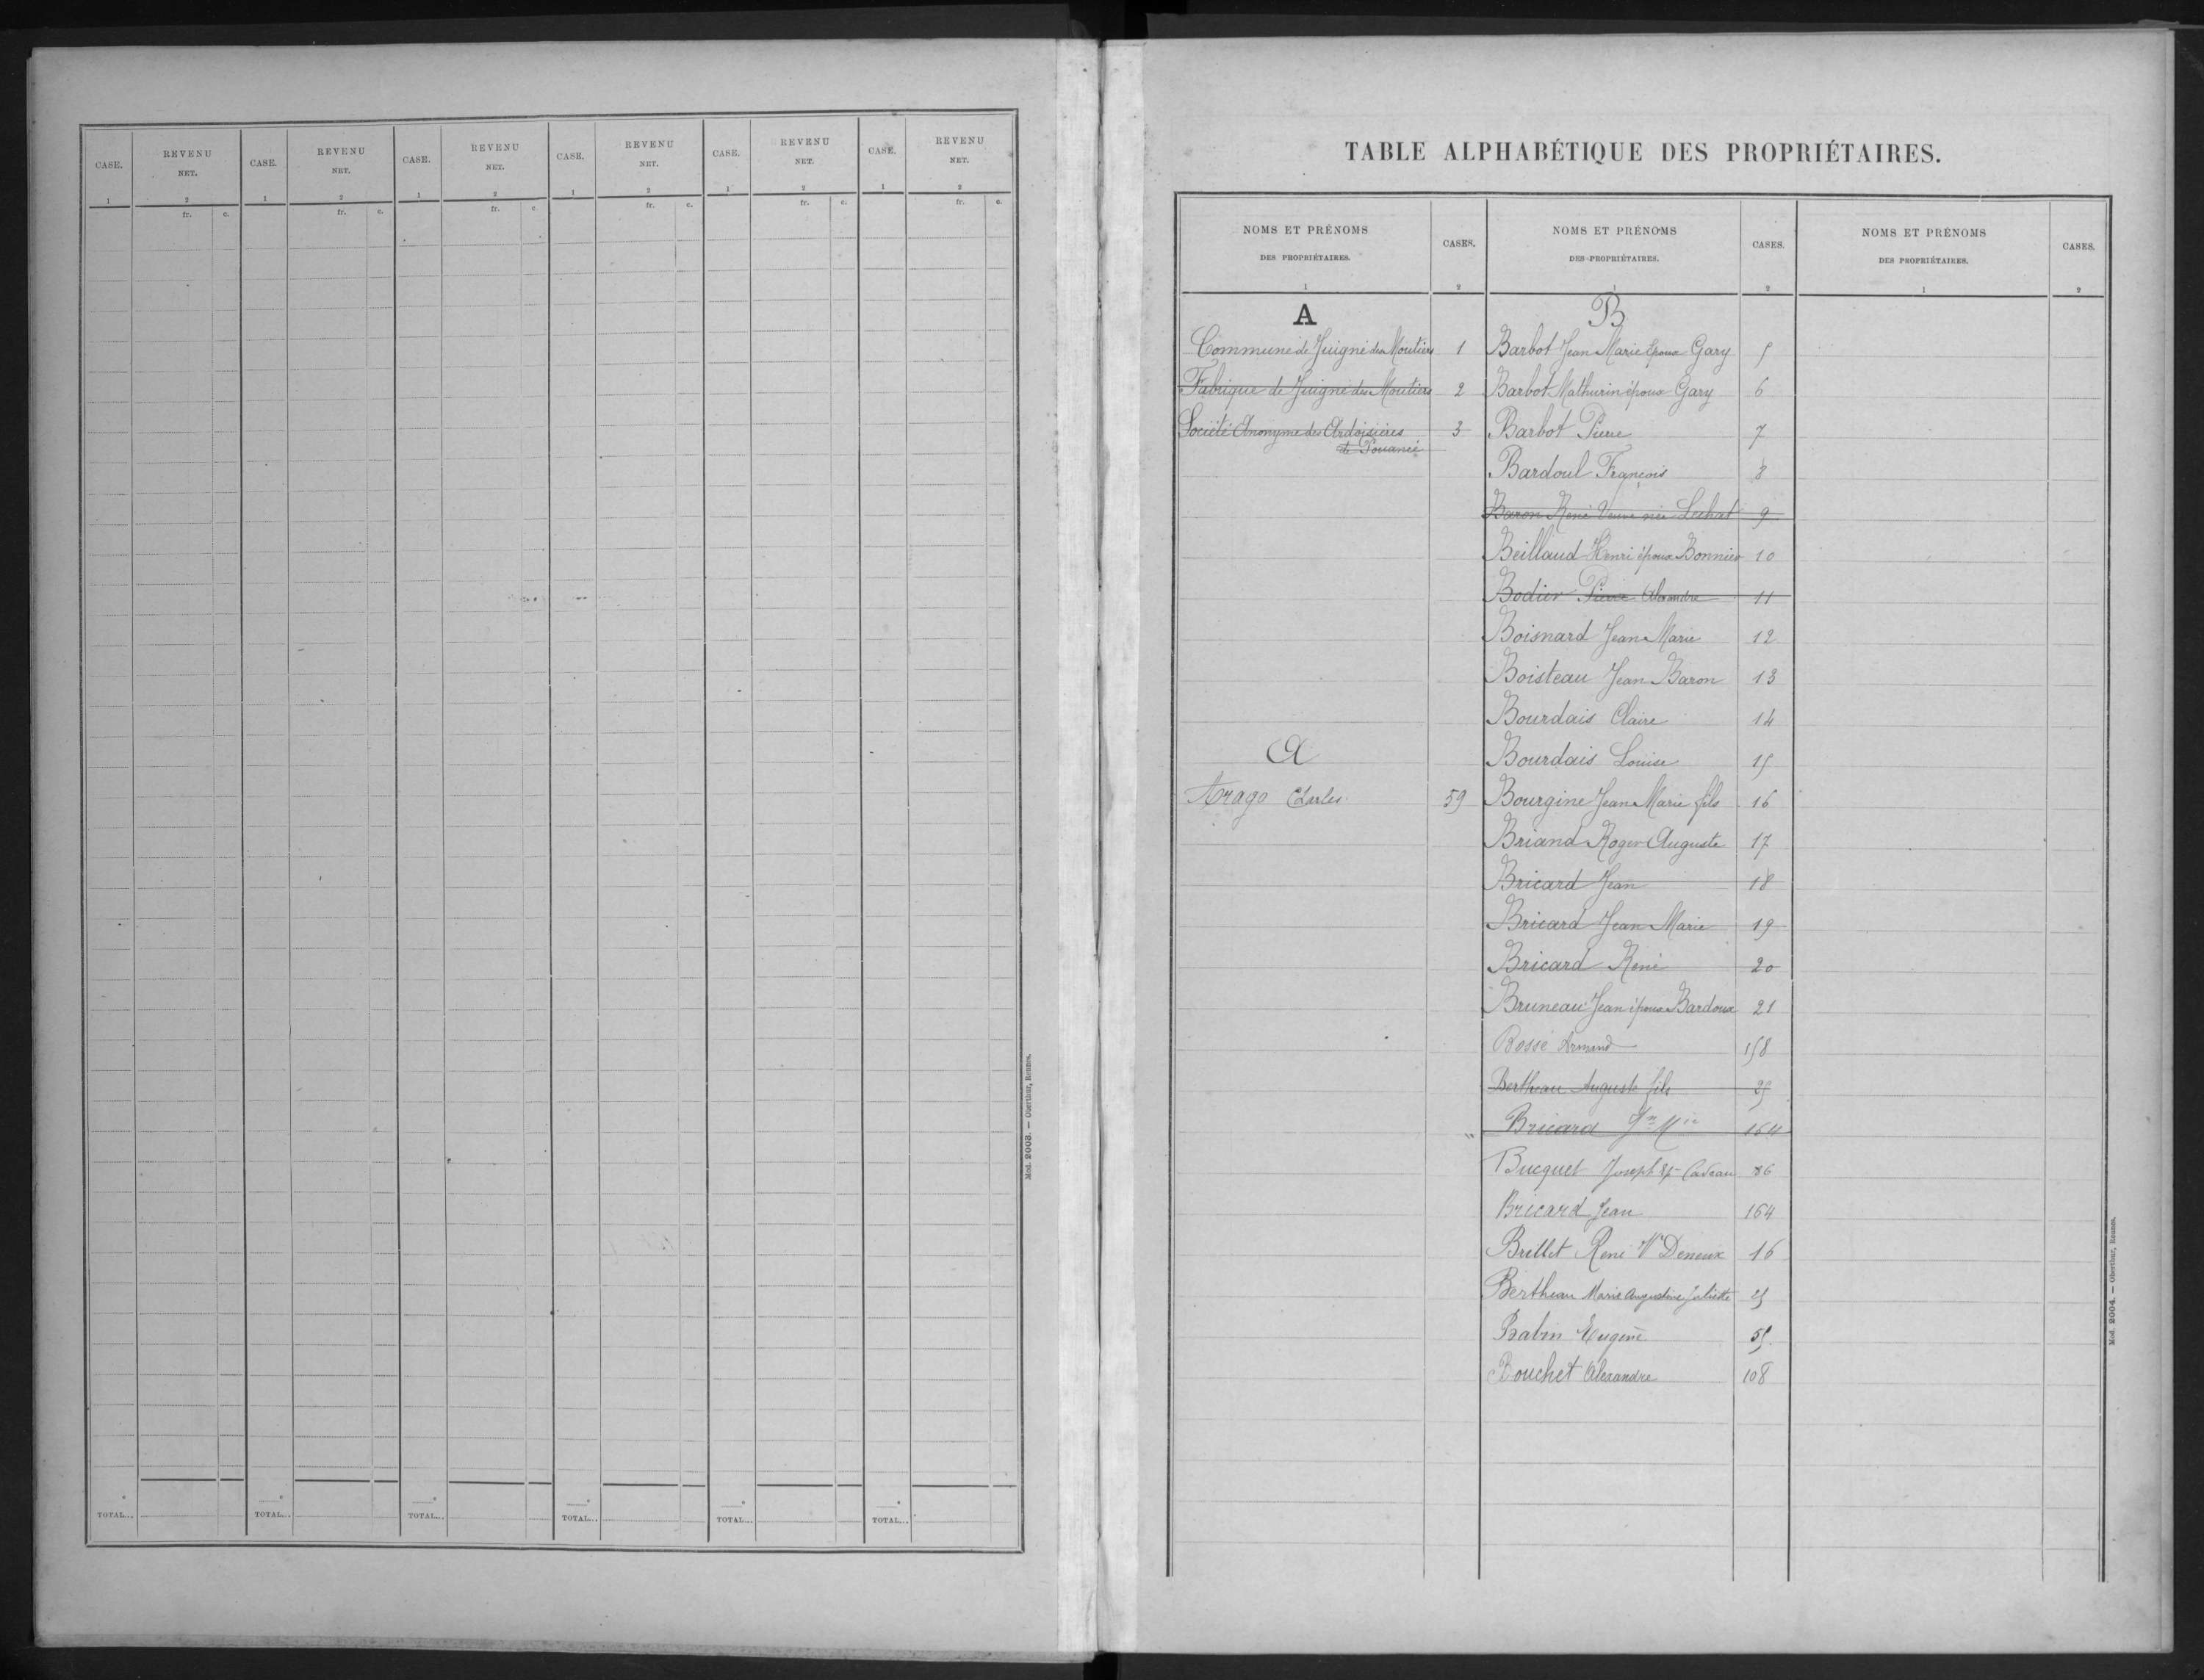 CASE. REVENU NET. CASE. REVENU NET. CASE. REVENU NET. CASE. REVENU NET. CASE. REVENU NET. CASE. REVENU NET.
1 2 1 2 1 2 1 2 1 2 1 2
fr. c. fr. c. fr. c. fr. c. fr. c. fr. c.
TOTAL... TOTAL... TOTAL... TOTAL... TOTAL... TOTAL...
Mod. 2003. — Oberthur, Rennes.
TABLE ALPHABÉTIQUE DES PROPRIÉTAIRES.
NOMS ET PRÉNOMS DES PROPRIÉTAIRES. CASES. NOMS ET PRÉNOMS DES PROPRIÉTAIRES. CASES. NOMS ET PRÉNOMS DES PROPRIÉTAIRES. CASES.
1 2 1 2 1 2
A
Commune de Juigné des Moutiers 1
Fabrique de Juigné des Moutiers 2
Société Anonyme des Ardoisières 3
de Pouancé
A
Arago Charles 59
B
Barbot Jean Marie époux Gary 5
Barbot Mathurin époux Gary 6
Barbot Pierre 7
Bardoul François 8
Baron René Veuve née Lechat 9
Beillaud Henri époux Bonnier 10
Bodier Pierre Alexandre 11
Boisnard Jean Marie 12
Boisteau Jean Baron 13
Bourdais Claire 14
Bourdais Louise 15
Bourgine Jean Marie fils 16
Briand Roger Auguste 17
Bricard Jean 18
Bricard Jean Marie 19
Bricard René 20
Bruneau Jean époux Bardoux 21
Bossé Armand 158
Bertheau Auguste fils 25
Bricard Jn Mie 164
Bucquet Joseph ép Cadeau 86
Bricard Jean 164
Brillet René Ve Deneux 16
Bertheau Marie Augustine Juliette 25
Babin Eugène 55
Bouchet Alexandre 108
Mod. 2004. — Oberthur, Rennes.